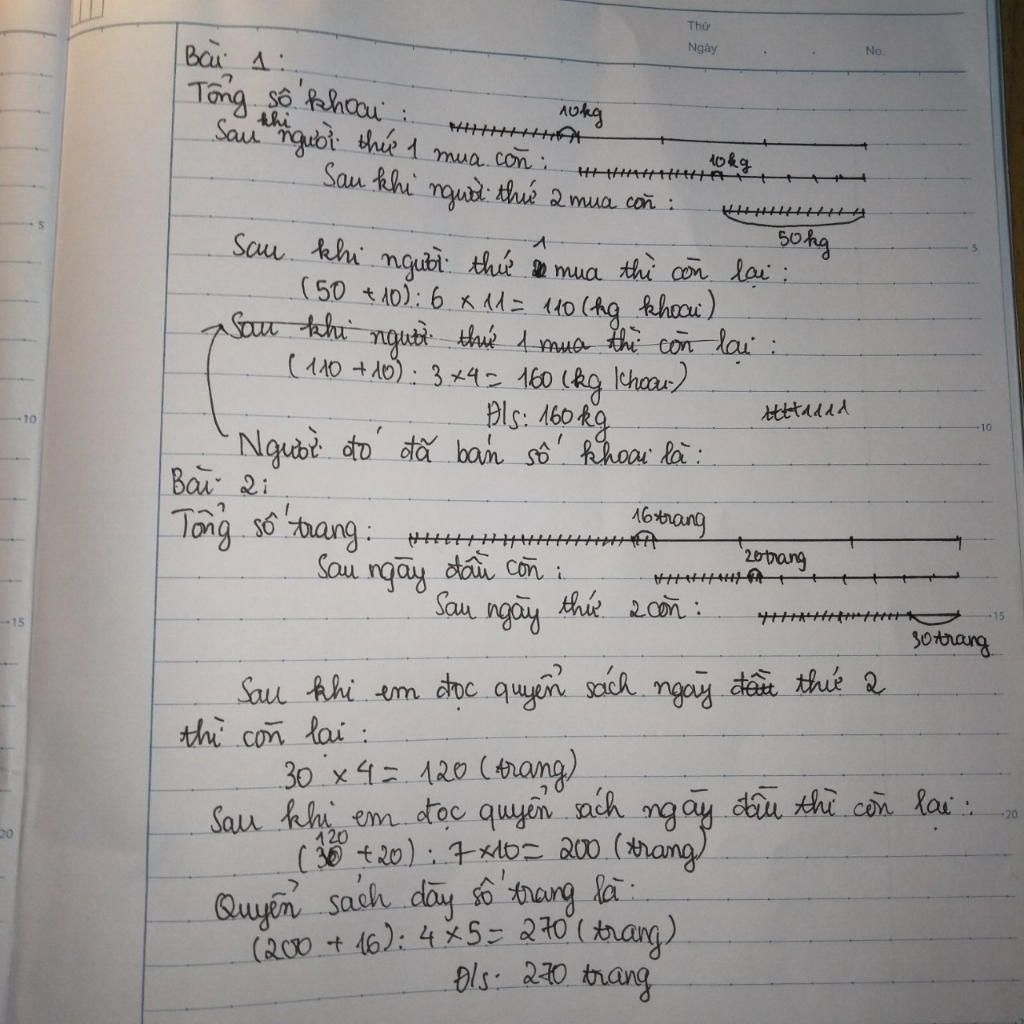 Thứ
Ngày . . No.
Bài 1:
Tổng số khoai: 10kg
Sau khi người thứ 1 mua còn: 10kg
Sau khi người thứ 2 mua còn:
50kg
Sau khi người thứ 1 mua thì còn lại:
(50 + 10): 6 × 11 = 110 (kg khoai)
Sau khi người thứ 1 mua thì còn lại:
(110 + 10): 3 × 4 = 160 (kg khoai)
Đ/s: 160 kg
Người đó đã bán số khoai là:
Bài 2:
Tổng số trang: 16 trang
Sau ngày đầu còn: 20 trang
Sau ngày thứ 2 còn:
30 trang
Sau khi em đọc quyển sách ngày đầu thứ 2
thì còn lại:
30 × 4 = 120 (trang)
Sau khi em đọc quyển sách ngày đầu thì còn lại:
120
(30 + 20): 7 × 10 = 200 (trang)
Quyển sách dày số trang là:
(200 + 16): 4 × 5 = 270 (trang)
Đ/s: 270 trang
5
10
15
20
5
10
15
20